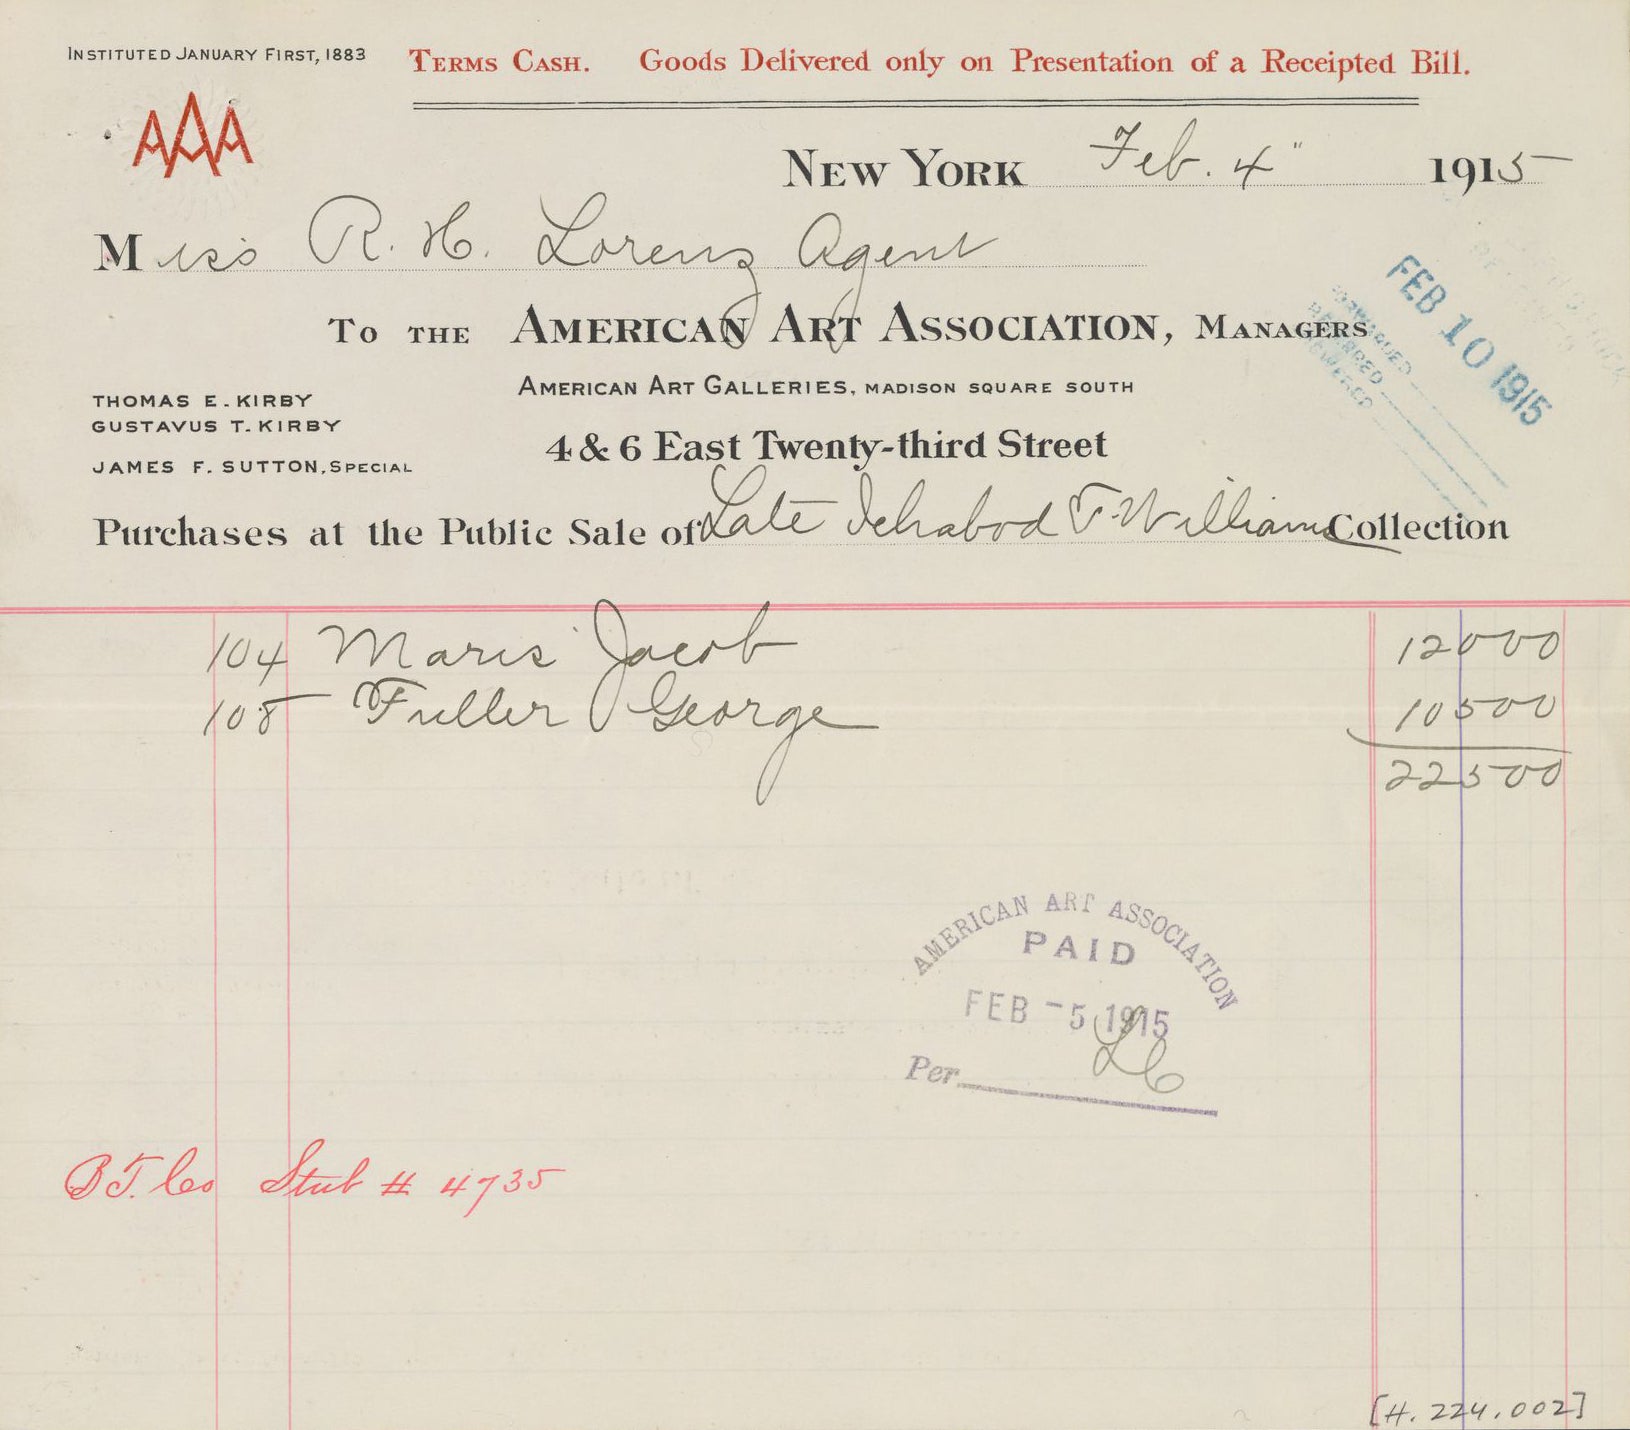 INSTITUTED JANUARY FIRST, 1883
TERMS CASH. Goods Delivered only on Presentation of a Receipted Bill.
AAA
NEW YORK Feb. 4" 1915
Miss R. H. Lorenz Agent
TO THE AMERICAN ART ASSOCIATION, MANAGERS
FEB 10 1915
AMERICAN ART GALLERIES, MADISON SQUARE SOUTH
THOMAS E. KIRBY
GUSTAVUS T. KIRBY
JAMES F. SUTTON, SPECIAL
4 & 6 East Twenty-third Street
Purchases at the Public Sale of Late Ichabod T. Williams Collection
104 Maris Jacob 120 00
108 Fuller George 105 00
225 00
AMERICAN ART ASSOCIATION
PAID
FEB -5 1915
Per
B.T. Co Stub # 4735
[H. 224.002]